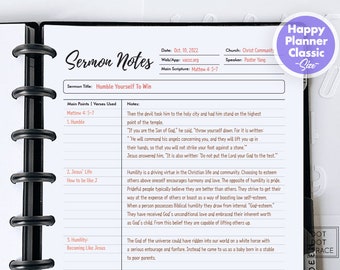 Happy
Planner
Classic
Size
Sermon Notes
Date: Oct. 10, 2022 Church: Christ Community
Web/App: Speaker: Pastor Yang
Main Scripture: Matthew 4: 5-7
Sermon Title: Humble Yourself To Win
Main Points | Verses Used Notes:
Mathew 4: 5-7 Then the devil took him to the holy city and had him stand on the highest
1. Humble point of the temple.
"If you are the Son of God," he said, "throw yourself down. For it is written:
"'He will command his angels concerning you, and they will lift you up in
their hands, so that you will not strike your foot against a stone.'"
Jesus answered him, "It is also written: 'Do not put the Lord your God to the test.'"
2. Jesus' Life Humility is a driving virtue in the Christian life and community. Choosing to esteem
How to be like 2 others above oneself encourages harmony and love. The opposite of humility is pride.
Prideful people typically believe they are better than others. They strive to get their
way at the expense of others to boast as a way of boosting low self-esteem.
When a person possesses Biblical humility they draw from heavenly "God-esteem."
They have received God's unconditional love and embraced their inherent worth
as God's child. From this belief they are capable of lifting others up.
3. Humility: The God of the universe could have ridden into our world on a white horse with
Becoming Like Jesus a serious entourage and fanfare. Instead he came to us as a baby born in a stable
to poor parents.
DOT
DOT
GRACE